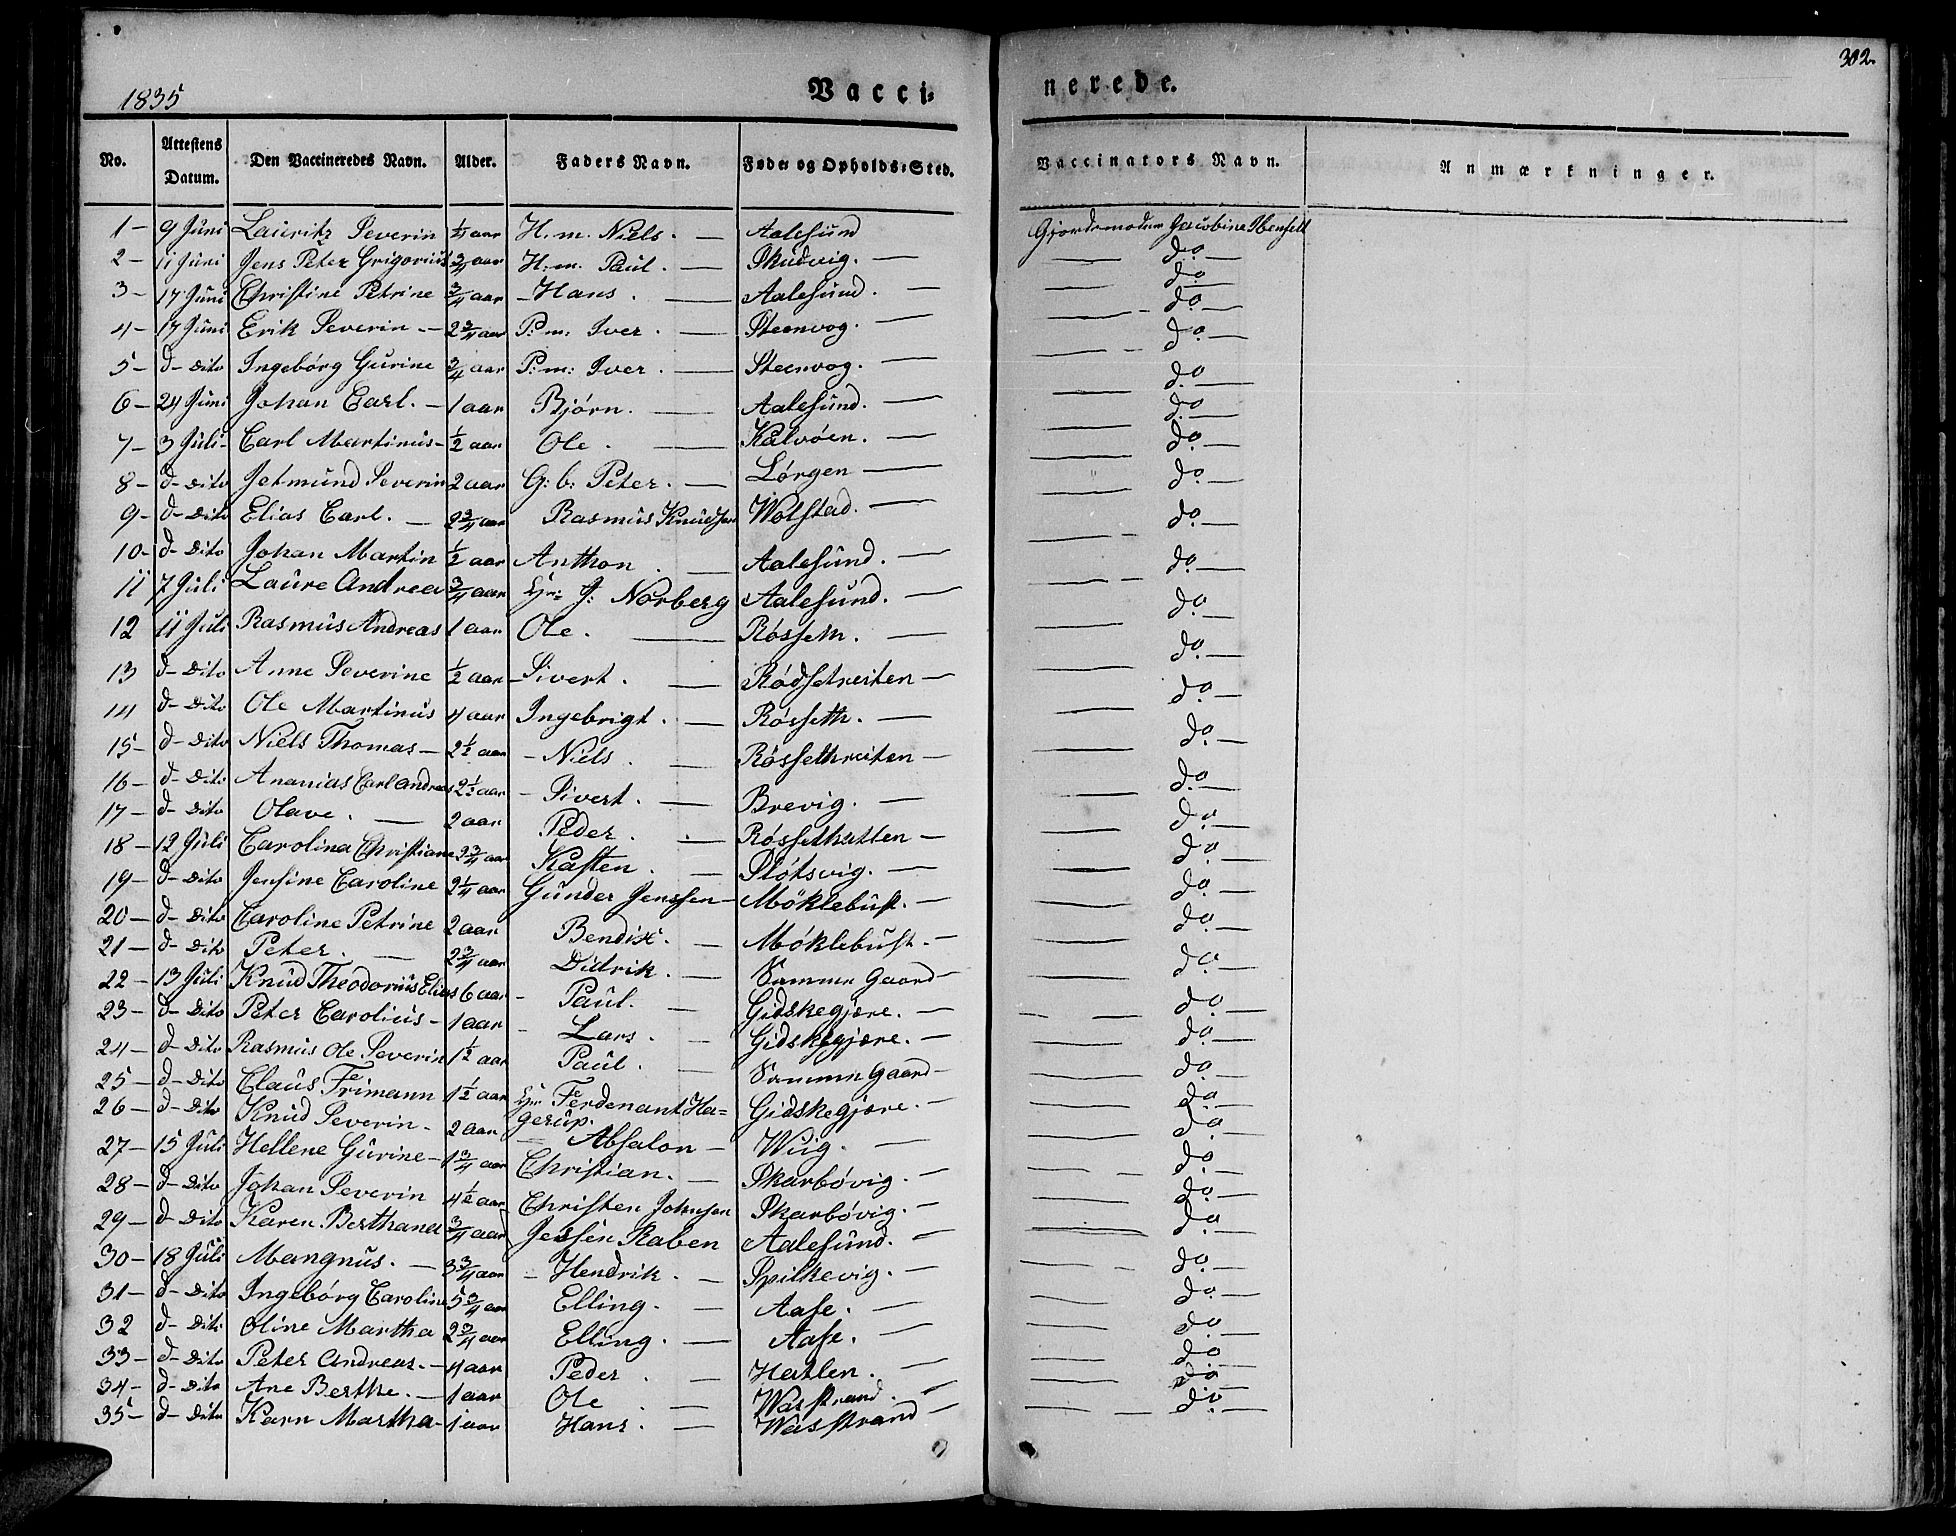 302.
1835 Vacci= nerede.
No. Attestens Datum. Den Vaccineredes Navn. Alder. Faders Navn. Føde- og Opholds-Sted. Vaccinators Navn. Anmærkninger.
1 - 9 Juni Lauritz Severin aar H. m. Niels. — Aalesund Gjordemoder Jacobine
2 - 11 Juni Jens Peter Grigorius 3/4 aar H. m. Paul. — Skudvig. — do —
3 - 17 Juni Christine Petrine 3/4 aar - Hans. — Aalesund. — do —
4 - 17 Juni Erik Severin - 2 3/4 aar P: m: Iver. — Steenvog. — do —
5 - d- Dito Ingebórg Gurine 3/4 aar P: m: Iver. — Steenvog. — do —
6 - 24 Juni Johan Carl. - 1 aar Bjórn. — Aalesund. — do —
7 - 3 Juli - Carl Martinus - 1/2 aar Ole. — Kalvóen. — do —
8 - d- Dito Jetmund Severin 2 aar G: b: Peter. — Lórgen — do —
9 - d- Dito Elias Carl. — 2 3/4 aar Rasmus Knudsen Wolstad. — do —
10 - d- Dito Johan Martin 1/2 aar Anthon. — Aalesund. — do —
11 7 Juli Laure Andrea 3/4 aar Hr: J: Norberg Aalesund. — do —
12 11 Juli Rasmus Andreas 1 aar Ole. — Rósseth. — do —
13 d- Dito Anne Severine 1/2 aar - Sivert. — Ródsetreiten — do —
14 d- Dito Ole Martinus 4 aar Ingebrigt. — Rósseth. — do —
15 - d- Dito Niels Thomas - 2 1/2 aar - Niels. — Róssethreiten — do —
16 - d- Dito Ananias Carl Andreas 2 1/2 aar - Sivert. — Brevig. — do —
17 - d- Dito Olave. — 2 aar Peder. — Róssethatlen — do —
18 - 12 Juli Carolina Christiane 3/4 aar Kasten. — Slótsvig. — do —
19 - d- Dito Jensine Caroline 2 1/4 aar Gunder Jenssen - Móklebust. — do —
20 - d- Dito Caroline Petrine 2 aar Bendix. — Móklebust. — do —
21 - d- Dito Peter. — 2 3/4 aar Didrik. — Gaard — do —
22 - 13 Juli Knud Theodorius Elias 6 aar - Paul. — Gidskegjære. — do —
23 - d- Dito Peter Carolius - 1 aar - Lars. — Gidskegjære. — do —
24 - d- Dito Rasmus Ole Severin 1 1/2 aar Paul. — Gaard — do —
25 - d- Dito Claus Frimann 1 1/2 aar Hr: Ferdenant Ha=
gerup. Gidskegjære. — do —
26 - d- Dito Knud Severin - 2 aar — Absalon — Wiig. — do —
27 - 15 Juli Hellene Gurine - 1 3/4 aar Christian. — Skarbóvig. — do —
28 - d- Dito Johan Severin 4 1/2 aar Christen Johnsen Skarbóvig. — do —
29 - d- Dito Karen Berthana 3/4 aar Jessen Raben Aalesund. — do —
30 - 18 Juli Mangnus. — 3 3/4 aar - Hendrik. — Spilkevig. — do —
31 - d- Dito Ingebórg Caroline 5 3/4 aar Elling. — Aase. — do —
32 d- Dito Oline Martha 2 3/4 aar Elling. — Aase. — do —
33 - d- Dito Peter Andreas. - 4 aar Peder. — Hatlen. — do —
34 - d- Dito Ane Berthe. — 1 aar Ole — Wasstrand. — do —
35 - d- Dito Karn Martha - 1 aar Hans. — Wasstrand — do —